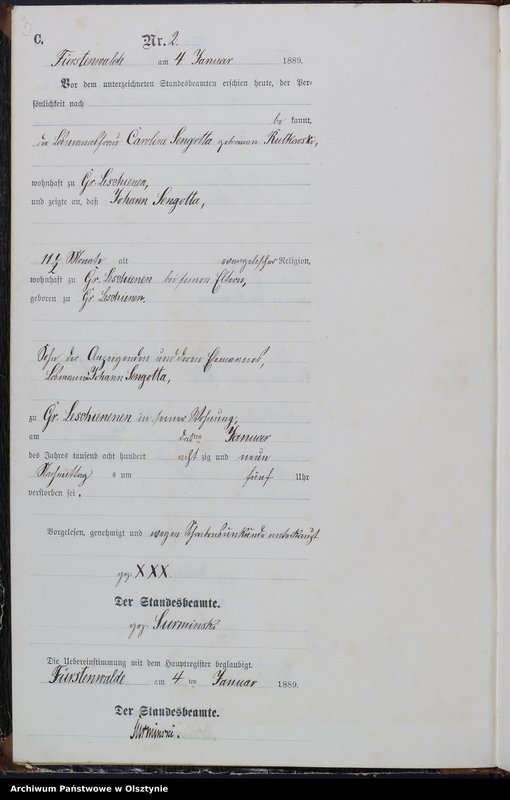 C.
Nr. 2.
Fürstenwalde am 4 Januar 1889.
Vor dem unterzeichneten Standesbeamten erschien heute, der Per-
sönlichkeit nach
be kannt,
die Losmannsfrau Caroline Sengotta geborenen Rutkowski,
wohnhaft zu Gr. Leschienen,
und zeigte an, daß Johann Sengotta,
11 1/2 Monate alt evangelischer Religion,
wohnhaft zu Gr. Leschienen bei seinen Eltern,
geboren zu Gr. Leschienen,
Sohn der Anzeigenden und deren Ehemannes,
Losmann Johann Sengotta,
zu Gr. Leschienenen in seiner Wohnung,
am ten Januar
des Jahres tausend acht hundert acht zig und neun
Nachmittag s um fünf Uhr
verstorben sei.
Vorgelesen, genehmigt und wegen Schreibensunkunde unterkreuzt
gez. XXX.
Der Standesbeamte.
gez. Surminski
Die Uebereinstimmung mit dem Hauptregister beglaubigt.
Fürstenwalde am 4 ten Januar 1889.
Der Standesbeamte.
Surminski.
Archiwum Państwowe w Olsztynie